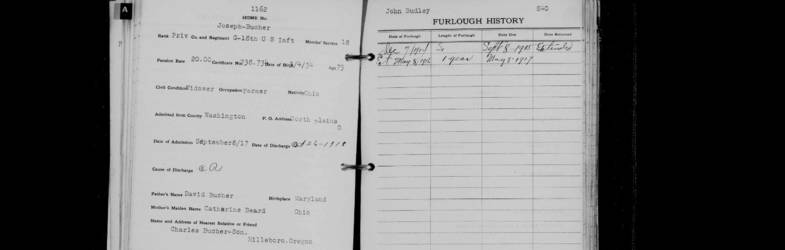 A
1162
HOME No.
Joseph-Bucher
Rank Priv Co. and Regiment G-18th U S Inft Months' Service 18
Pension Rate 20.00 Certificate No. Date of Birth /4/34 Age
Civil Condition Widower Occupation Farmer Nativity Ohio
Admitted from County Washington P. O. Address North plains
O
Date of Admission September5/17 Date of Discharge
Cause of Discharge
Father's Name David Bucher Birthplace Maryland
Mother's Maiden Name Catharine Beard Ohio
Name and Address of Nearest Relative or Friend
Charles Bucher-Son.
Hillsboro.Oregon
John Dudley
FURLOUGH HISTORY
Date of Furlough Length of Furlough Date Due Date Returned
Dec 7/ Sept 8 Extended
May 8, 1 year May 8